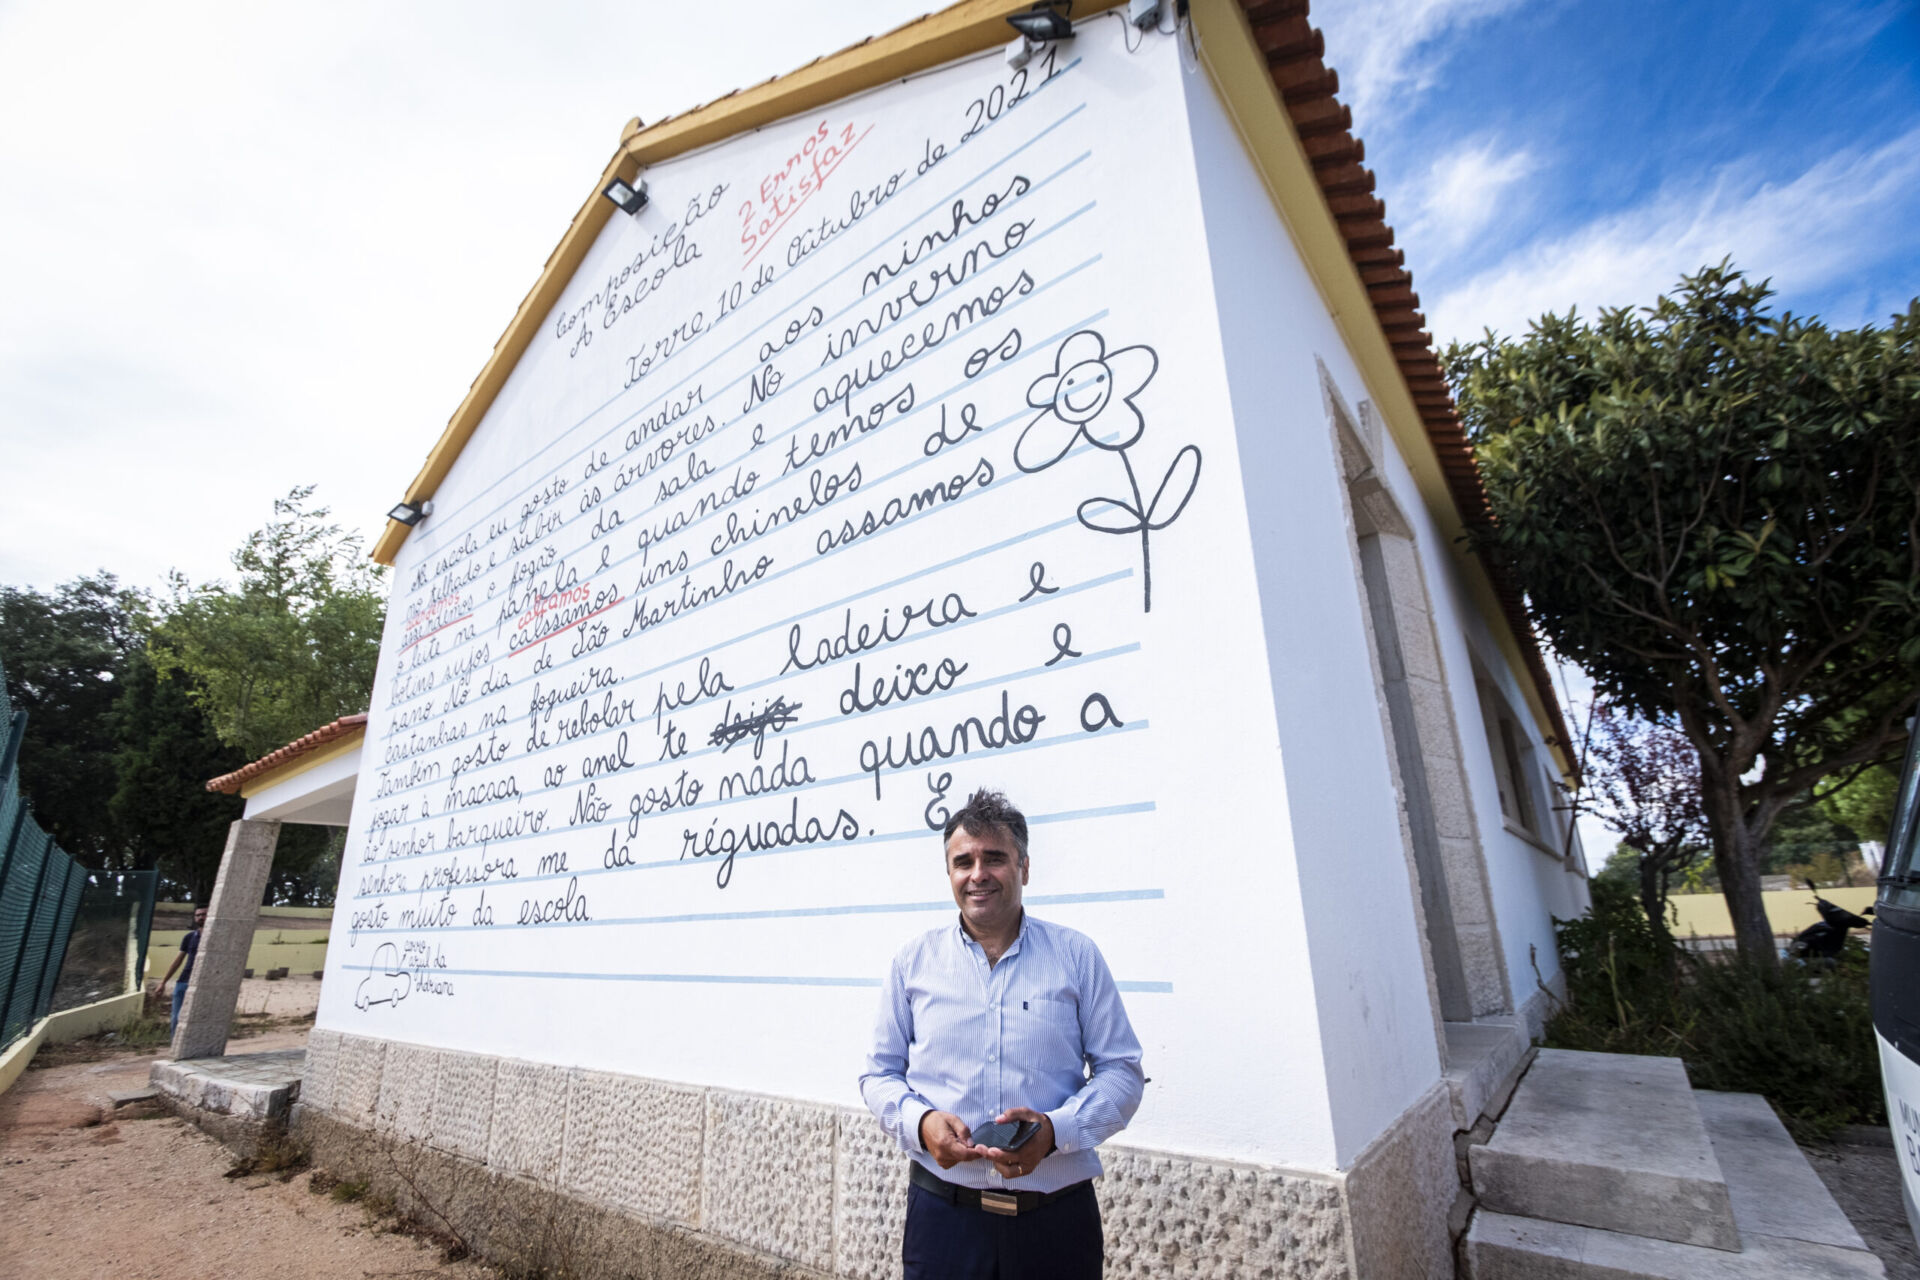 Composição
A Escola
2 Erros
Satisfaz
Torre, 10 de Outubro de 2021
Na escola eu gosto de andar aos ninhos
no telhado e subir às árvores. No inverno
acendemos
assendemos o fogão da sala e aquecemos
o leite na panela e quando temos os
calçamos
botins sujos calssamos uns chinelos de
pano. No dia de São Martinho assamos
castanhas na fogueira.
Também gosto de rebolar pela ladeira e
jogar à macaca, ao anel te deijo deixo e
ao senhor barqueiro. Não gosto nada quando a
senhora professora me dá réguadas. E
gosto muito da escola.
carro
azul da
Adriana
MUN